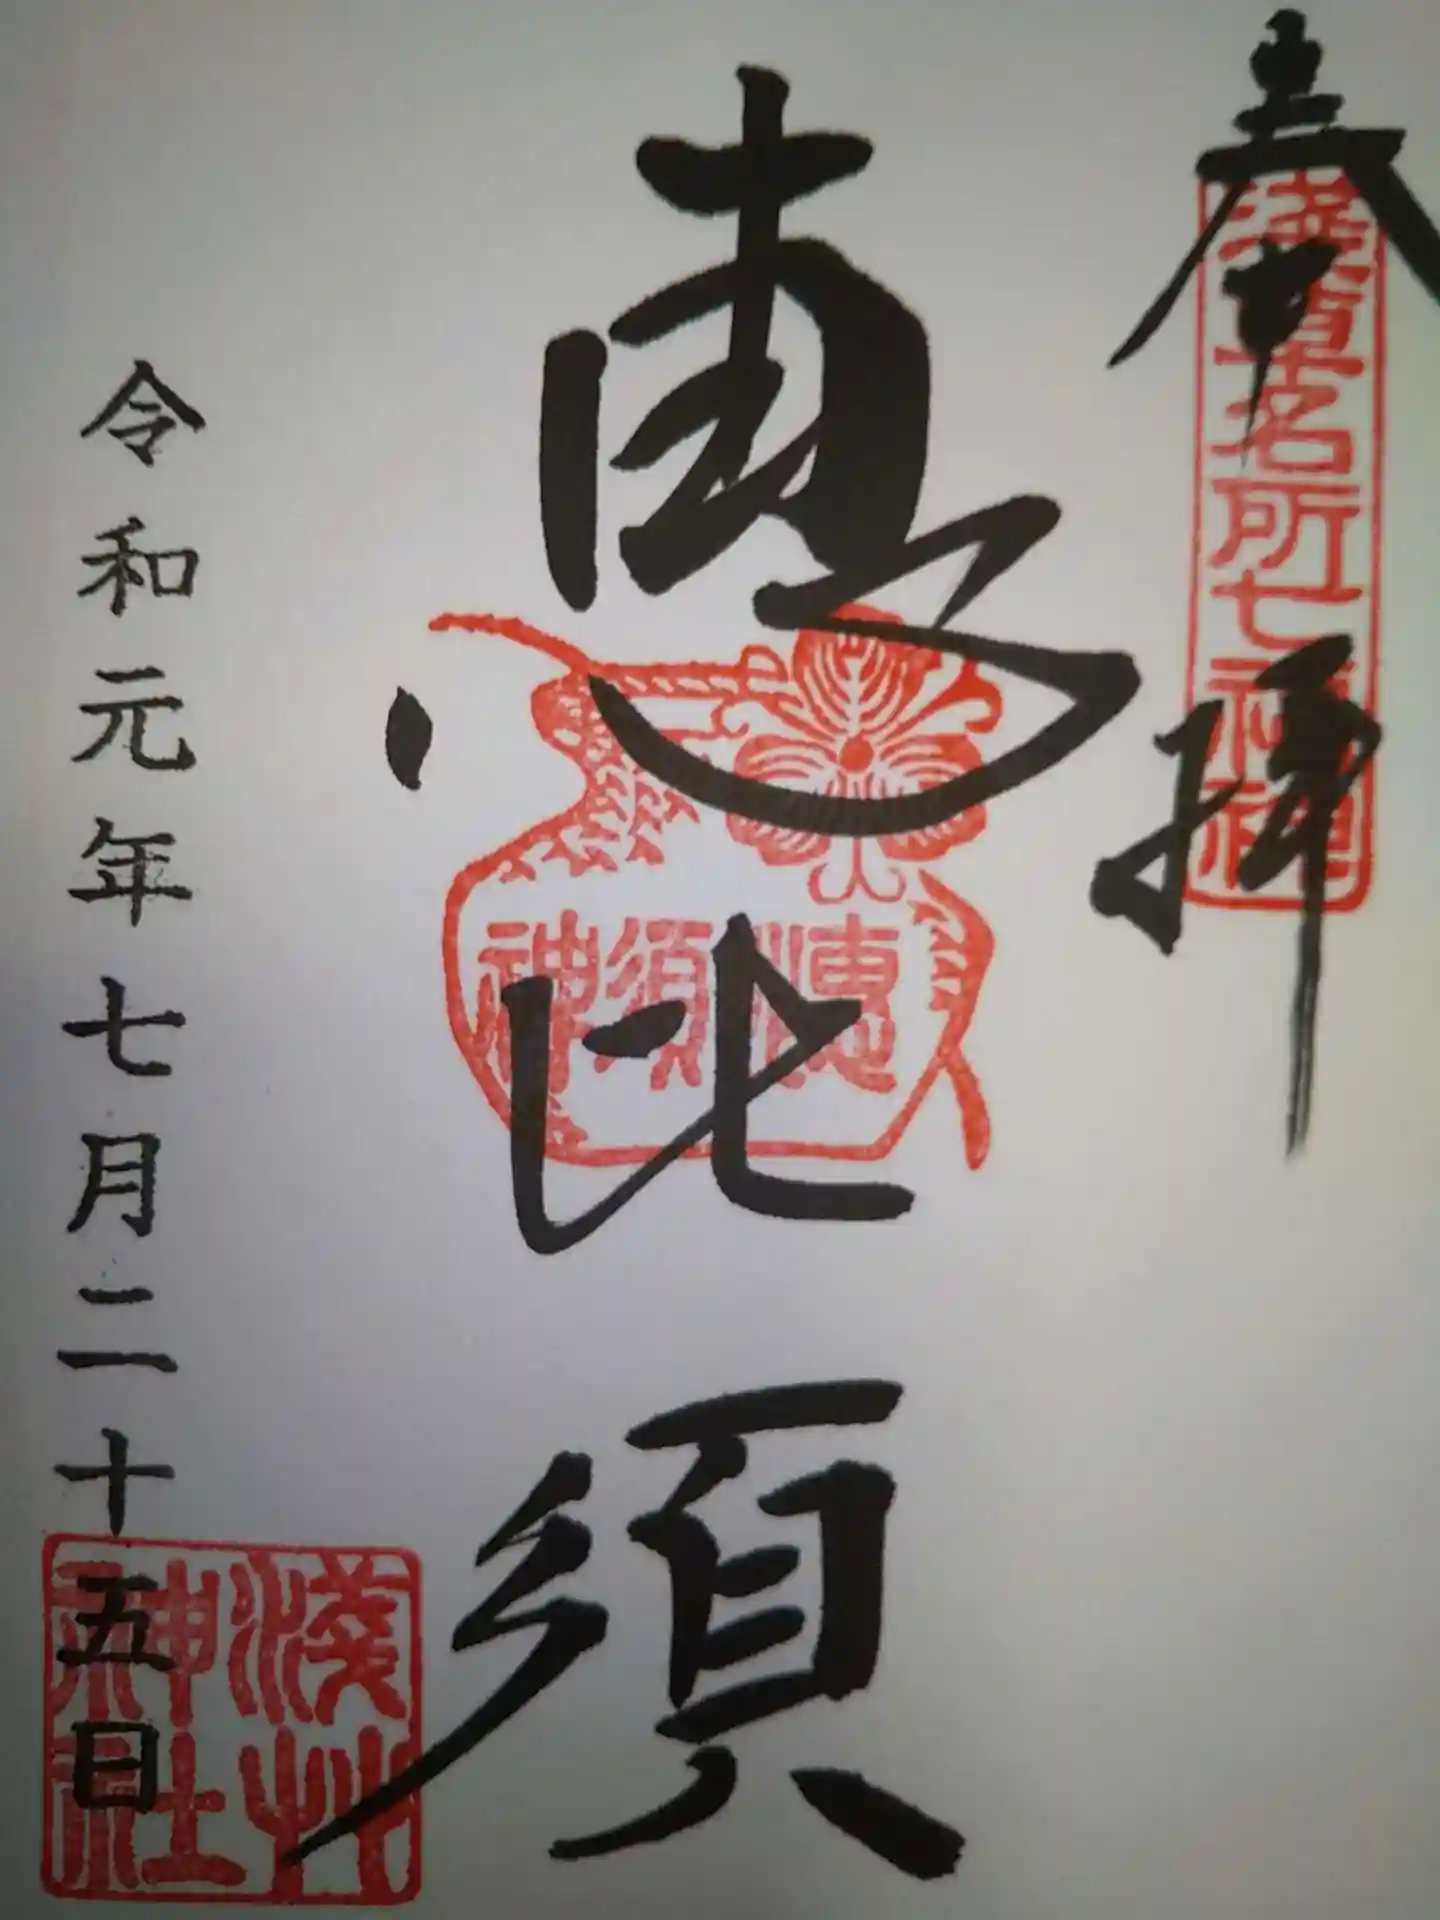 奉拝
浅草名所七福神
恵比須
恵比須神
令和元年七月二十五日
浅艸神社